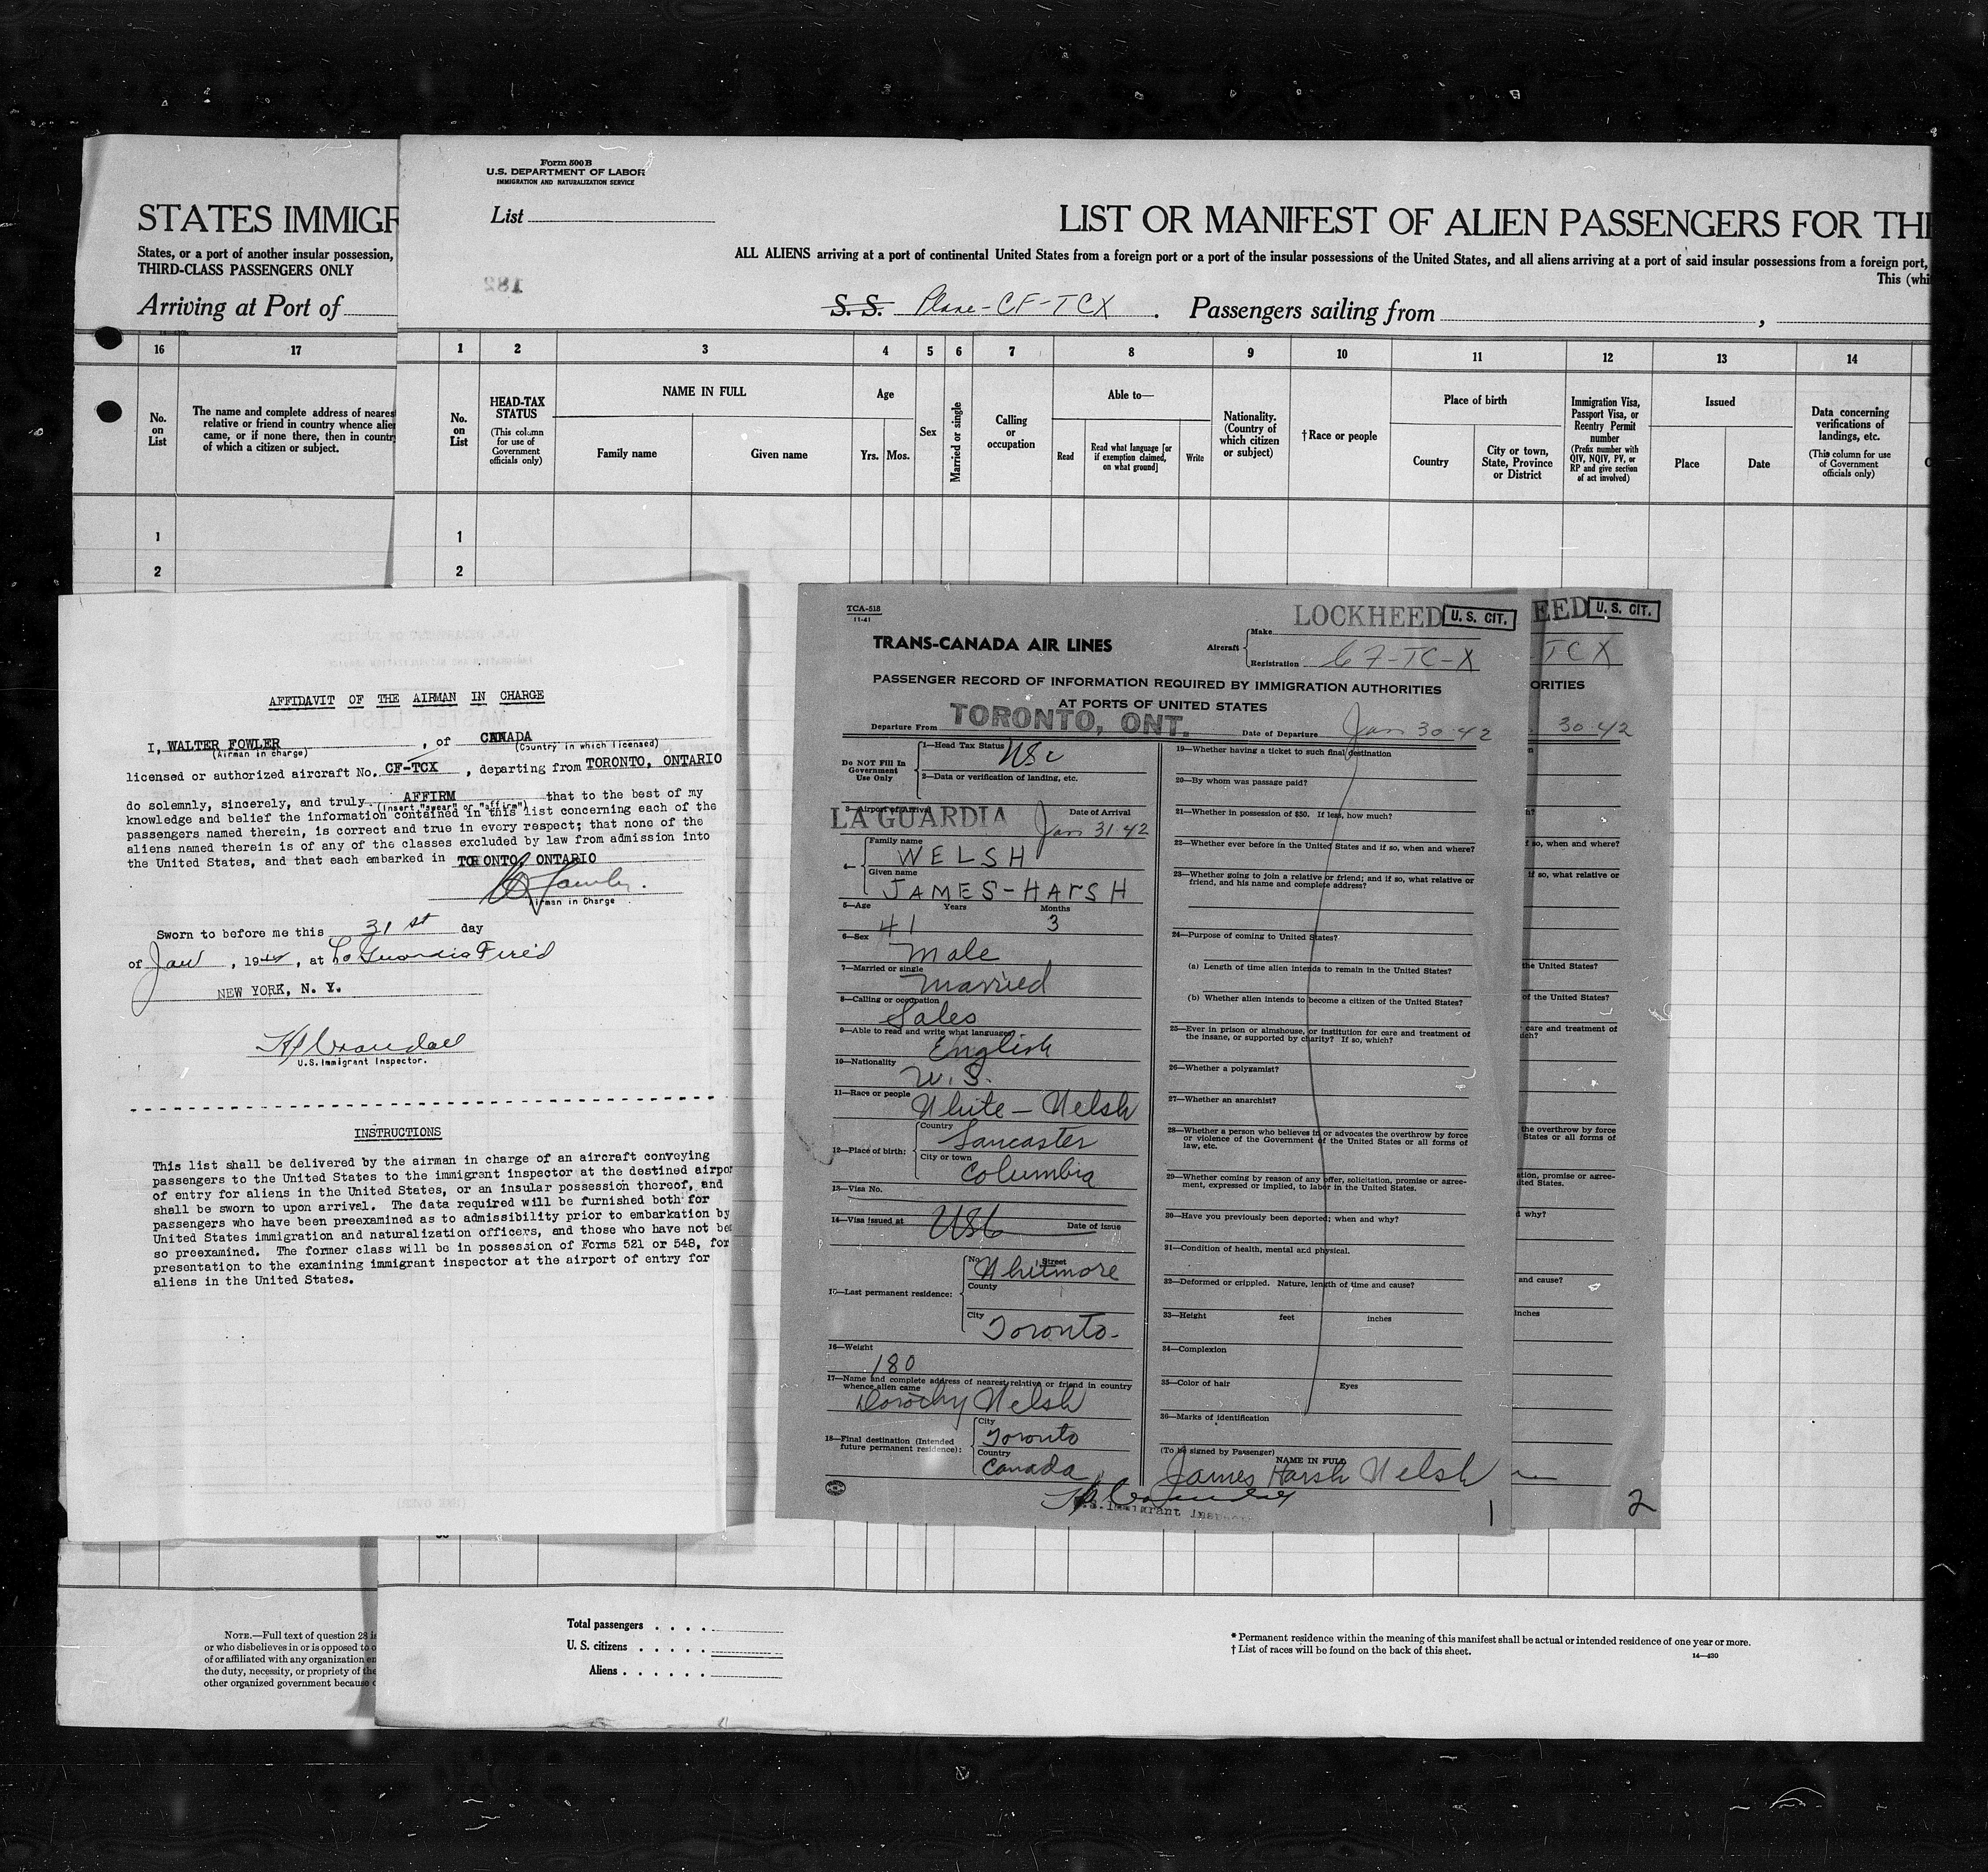 STATES IMMIGR
States, or a port of another insular possession,
THIRD-CLASS PASSENGERS ONLY
Arriving at Port of
16 17
No. on List
The name and complete address of neares
relative or friend in country whence alie
came, or if none there, then in countr
of which a citizen or subject.
1
2
Form 500 B
U.S. DEPARTMENT OF LABOR
IMMIGRATION AND NATURALIZATION SERVICE
List
LIST OR MANIFEST OF ALIEN PASSENGERS FOR TH
ALL ALIENS arriving at a port of continental United States from a foreign port or a port of the insular possessions of the United States, and all aliens arriving at a port of said insular possessions from a foreign port,
This (whi
182
S. S. Plane-CF-TCX. Passengers sailing from ,
1 2 3 4 5 6 7 8 9 10 11 12 13 14
No. on List
HEAD-TAX STATUS
(This column for use of Government officials only)
NAME IN FULL
Family name Given name
Age
Yrs. Mos.
Sex
Married or single
Calling or occupation
Able to—
Read
Read what language [or if exemption claimed, on what ground]
Write
Nationality. (Country of which citizen or subject)
† Race or people
Place of birth
Country
City or town, State, Province or District
Immigration Visa, Passport Visa, or Reentry Permit number
(Prefix number with QIV, NQIV, PV, or RP and give section of act involved)
Issued
Place Date
Data concerning verifications of landings, etc.
(This column for use of Government officials only)
1
2
AFFIDAVIT OF THE AIRMAN IN CHARGE
I, WALTER FOWLER , of CANADA
(Airman in charge) (Country in which licensed)
licensed or authorized aircraft No. CF-TCX , departing from TORONTO, ONTARIO
do solemnly, sincerely, and truly AFFIRM that to the best of my
(insert "swear" or "affirm")
knowledge and belief the information contained in this list concerning each of the
passengers named therein, is correct and true in every respect; that none of the
aliens named therein is of any of the classes excluded by law from admission into
the United States, and that each embarked in TORONTO, ONTARIO
Airman in Charge
Sworn to before me this 31st day
of Jan , 19 , at La Guardia Field
NEW YORK, N. Y.
U.S. Immigrant Inspector.
INSTRUCTIONS
This list shall be delivered by the airman in charge of an aircraft conveying
passengers to the United States to the immigrant inspector at the destined airpor
of entry for aliens in the United States, or an insular possession thereof, and
shall be sworn to upon arrival. The data required will be furnished both for
passengers who have been preexamined as to admissibility prior to embarkation by
United States immigration and naturalization officers, and those who have not be
so preexamined. The former class will be in possession of Forms 521 or 548, for
presentation to the examining immigrant inspector at the airport of entry for
aliens in the United States.
TCA-518
11-41
TRANS-CANADA AIR LINES
Aircraft
Make LOCKHEED
U. S. CIT.
Registration CF-TC-X
PASSENGER RECORD OF INFORMATION REQUIRED BY IMMIGRATION AUTHORITIES
AT PORTS OF UNITED STATES
Departure From TORONTO, ONT. Date of Departure Jan 30-42
Do NOT Fill In Government Use Only
1—Head Tax Status USc
2—Data or verification of landing, etc.
3—Airport of Arrival Date of Arrival
LA GUARDIA Jan 31-42
4—
Family name
WELSH
Given name
JAMES-HARSH
5—Age Years Months
41 3
6—Sex
Male
7—Married or single
Married
8—Calling or occupation
Sales
9—Able to read and write what languages?
English
10—Nationality
U.S.
11—Race or people White-Welsh
12—Place of birth:
Country
Lancaster
City or town
Columbia
13—Visa No.
14—Visa issued at USC Date of issue
15—Last permanent residence:
No. Street
Whitmore
County
City
Toronto-
16—Weight
180
17—Name and complete address of nearest relative or friend in country
whence alien came
Dorothy Welsh
18—Final destination (Intended
future permanent residence):
City
Toronto
Country
Canada
19—Whether having a ticket to such final destination
20—By whom was passage paid?
21—Whether in possession of $50. If less, how much?
22—Whether ever before in the United States and if so, when and where?
23—Whether going to join a relative or friend; and if so, what relative or
friend, and his name and complete address?
24—Purpose of coming to United States?
(a) Length of time alien intends to remain in the United States?
(b) Whether alien intends to become a citizen of the United States?
25—Ever in prison or almshouse, or institution for care and treatment of
the insane, or supported by charity? If so, which?
26—Whether a polygamist?
27—Whether an anarchist?
28—Whether a person who believes in or advocates the overthrow by force
or violence of the Government of the United States or all forms of
law, etc.
29—Whether coming by reason of any offer, solicitation, promise or agree-
ment, expressed or implied, to labor in the United States.
30—Have you previously been deported; when and why?
31—Condition of health, mental and physical.
32—Deformed or crippled. Nature, length of time and cause?
33—Height feet inches
34—Complexion
35—Color of hair Eyes
36—Marks of identification
(To be signed by Passenger)
NAME IN FULL
James Harsh Welsh
U.S. Immigrant Inspector
1
EED
U. S. CIT.
TCX
ORITIES
30-42
n?
f so, when and where?
if so, what relative or
the United States?
of the United States?
care and treatment of
ich?
the overthrow by force
States or all forms of
ation, promise or agree-
ited States.
d why?
and cause?
inches
2
NOTE.—Full text of question 28 is
or who disbelieves in or is opposed to o
of or affiliated with any organization en
the duty, necessity, or propriety of the
other organized government because o
Total passengers
U. S. citizens
Aliens
* Permanent residence within the meaning of this manifest shall be actual or intended residence of one year or more.
† List of races will be found on the back of this sheet.
14—430